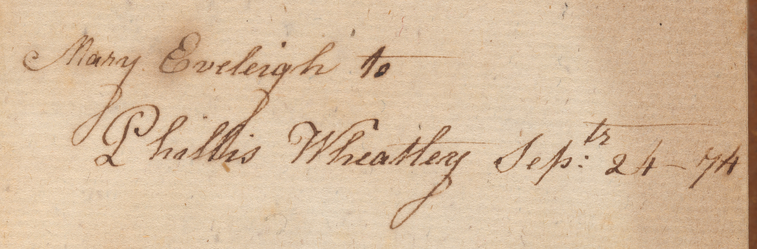 Mary Eveleigh to
Phillis Wheatley Sep:tr 24 - 74